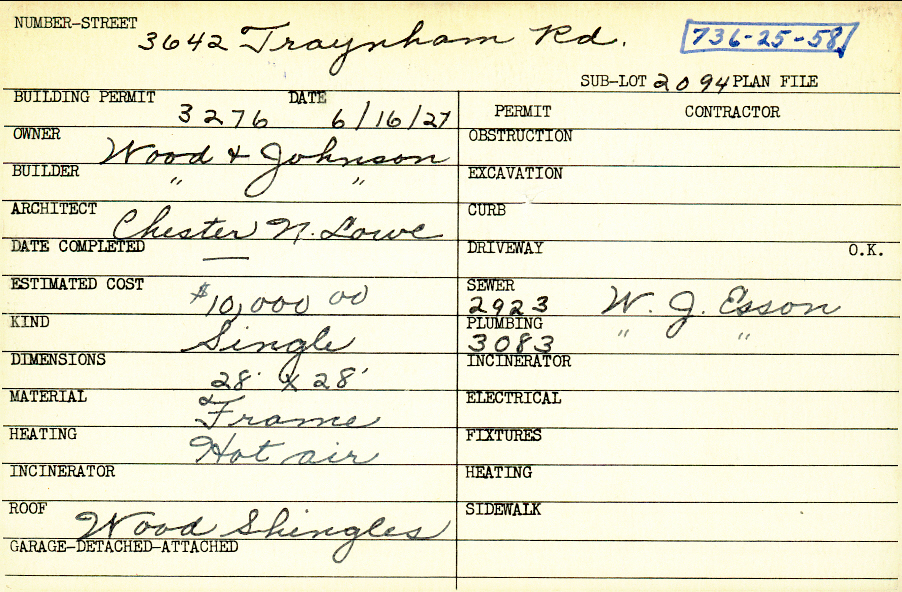 NUMBER-STREET 3642 Traynham Rd. 736-25-58
SUB-LOT 2094 PLAN FILE
BUILDING PERMIT 3276 DATE 6/16/27
OWNER Wood & Johnson
BUILDER " "
ARCHITECT Chester N. Lowe
DATE COMPLETED —
ESTIMATED COST $10,000 00
KIND Single
DIMENSIONS 28' x 28'
MATERIAL Frame
HEATING Hot air
INCINERATOR
ROOF Wood Shingles
GARAGE-DETACHED-ATTACHED
PERMIT CONTRACTOR
OBSTRUCTION
EXCAVATION
CURB
DRIVEWAY O.K.
SEWER 2923 W. J. Esson
PLUMBING 3083 " "
INCINERATOR
ELECTRICAL
FIXTURES
HEATING
SIDEWALK